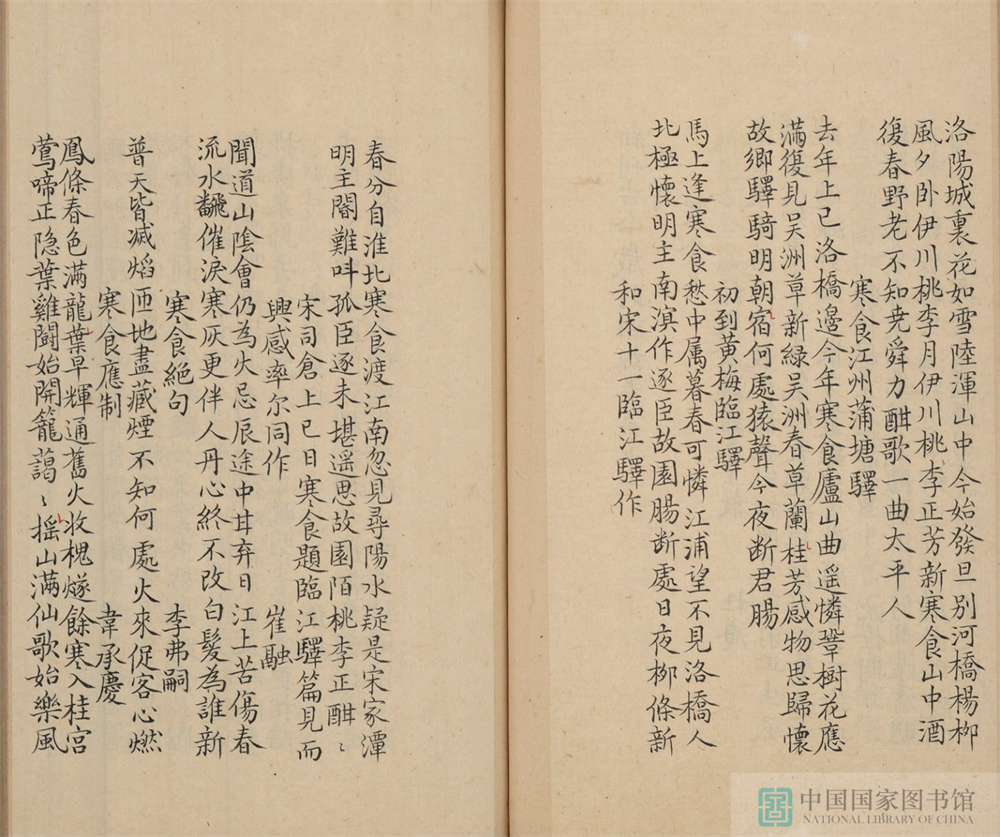 洛陽城裏花如雪陸渾山中今始發旦别河橋楊柳
風夕卧伊川桃李月伊川桃李正芳新寒食山中酒
復春野老不知堯舜力酣歌一曲太平人
寒食江州蒲塘驛
去年上巳洛橋邊今年寒食廬山曲遥憐鞏樹花應
滿復見吴洲草新緑吴洲春草蘭桂芳感物思歸懷
故鄉驛騎明朝宿何處猿聲今夜断君腸
初到黄梅臨江驛
馬上逢寒食愁中属暮春可憐江浦望不見洛橋人
北極懷明主南溟作逐臣故園腸断處日夜柳條新
和宋十一臨江驛作
春分自淮北寒食渡江南忽見尋陽水疑是宋家潭
明主閽難呌孤臣逐未堪遥思故園陌桃李正酣〻
宋司倉上巳日寒食題臨江驛篇見而
興感率尔同作 崔融
聞道山陰會仍為火忌辰途中甘弃日江上苦傷春
流水飜催淚寒灰更伴人丹心終不改白髮為誰新
寒食絶句 李弗嗣
普天皆滅焰匝地盡藏煙不知何處火來促客心燃
寒食應制 韋承慶
鳳條春色滿龍葉早輝通舊火收槐燧餘寒入桂宫
鶯啼正隐葉雞鬪始開籠藹〻揺山滿仙歌始樂風
中国国家图书馆
NATIONAL LIBRARY OF CHINA